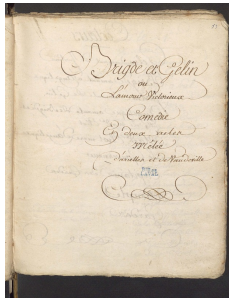 Brigde et Gelin
ou
L'amour Victorieux
Comédie
En deux actes
mêlée
d'ariettes et de Vaudeville